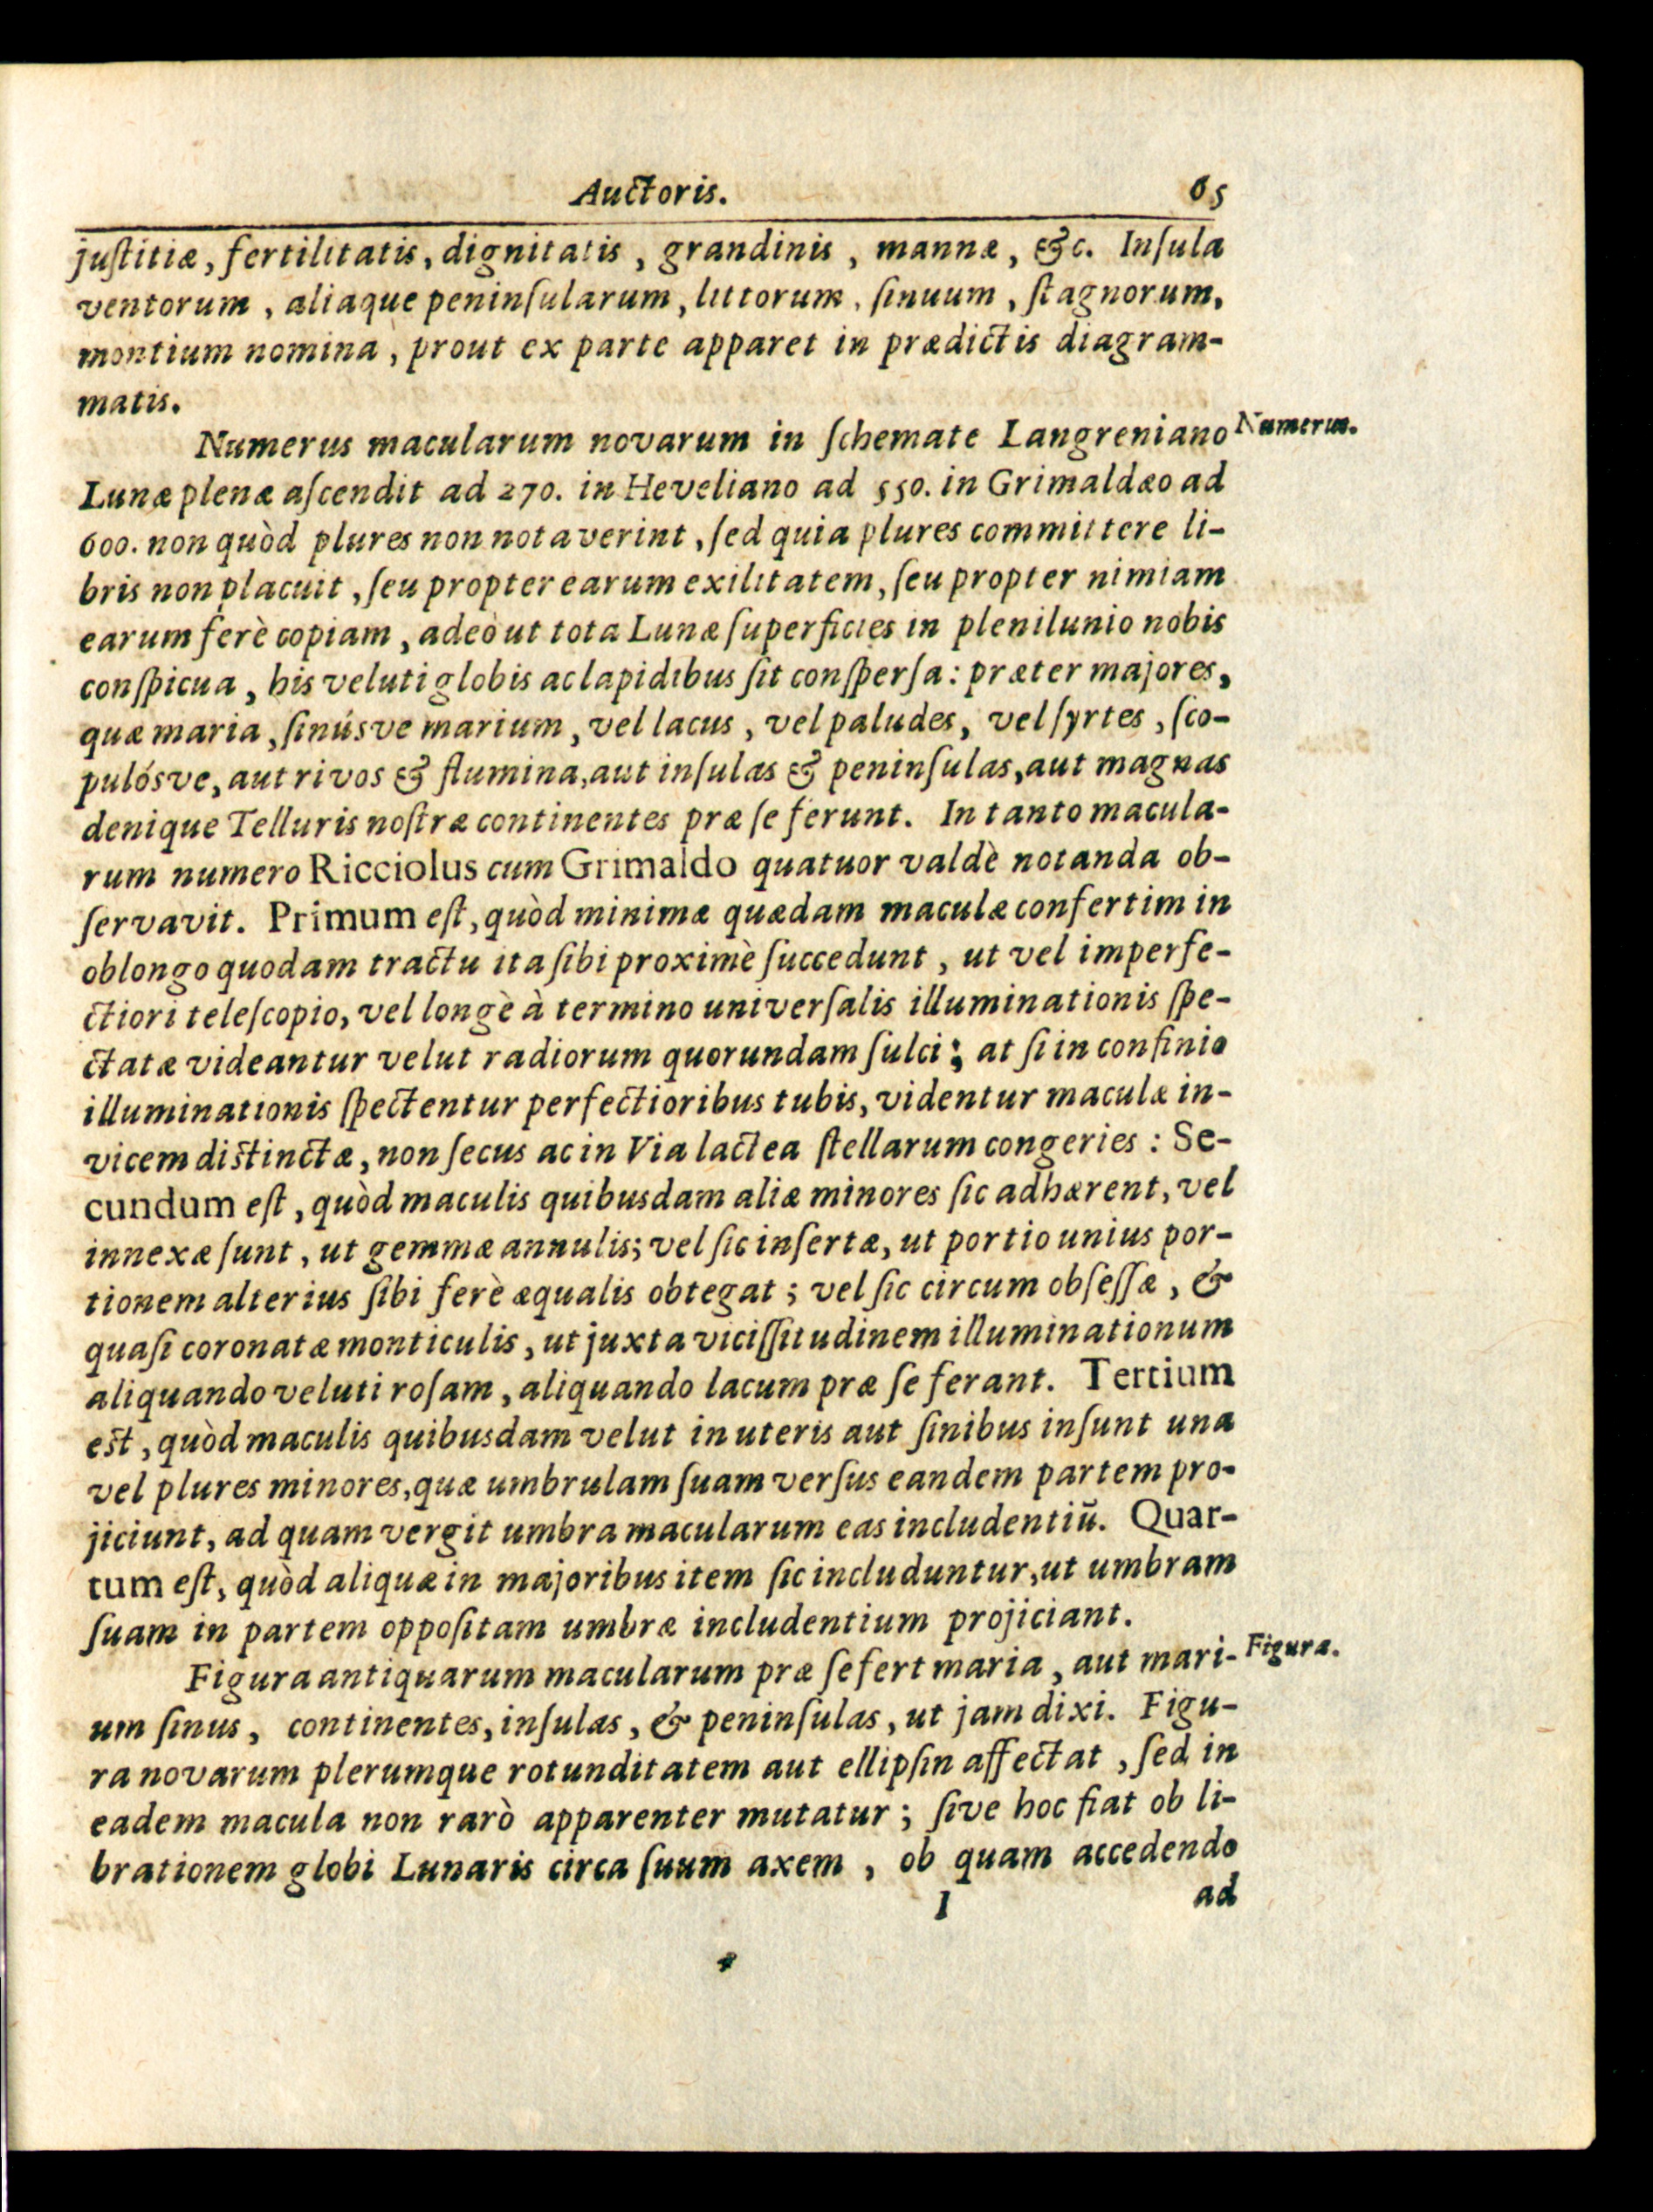 Auctoris. 65
juſtitiæ, fertilitatis, dignitatis, grandinis, mannæ, &c. Inſula
ventorum, aliaque peninſularum, littorum, ſinuum, ſtagnorum,
montium nomina, prout ex parte apparet in prædictis diagram-
matis.
Numerus macularum novarum in ſchemate Langreniano Numerus.
Lunæ plenæ aſcendit ad 270. in Heveliano ad 550. in Grimaldæo ad
600. non quòd plures non notaverint, ſed quia plures committere li-
bris non placuit, ſeu propter earum exilitatem, ſeu propter nimiam
earum ferè copiam, adeò ut tota Lunæ ſuperficies in plenilunio nobis
conſpicua, his veluti globis ac lapidibus ſit conſperſa: præter majores,
quæ maria, ſinúsve marium, vel lacus, vel paludes, vel ſyrtes, ſco-
pulósve, aut rivos & flumina, aut inſulas & peninſulas, aut magnas
denique Telluris noſtræ continentes præ ſe ferunt. In tanto macula-
rum numero Ricciolus cum Grimaldo quatuor valdè notanda ob-
ſervavit. Primum eſt, quòd minimæ quædam maculæ confertim in
oblongo quodam tractu ita ſibi proximè ſuccedunt, ut vel imperfe-
ctiori teleſcopio, vel longè à termino univerſalis illuminationis ſpe-
ctatæ videantur velut radiorum quorundam ſulci; at ſi in confinio
illuminationis ſpectentur perfectioribus tubis, videntur maculæ in-
vicem diſtinctæ, non ſecus ac in Via lactea ſtellarum congeries: Se-
cundum eſt, quòd maculis quibusdam aliæ minores ſic adhærent, vel
innexæ ſunt, ut gemmæ annulis; vel ſic inſertæ, ut portio unius por-
tionem alterius ſibi ferè æqualis obtegat; vel ſic circum obſeſſæ, &
quaſi coronatæ monticulis, ut juxta viciſſitudinem illuminationum
aliquando veluti roſam, aliquando lacum præ ſe ferant. Tertium
eſt, quòd maculis quibusdam velut in uteris aut ſinibus inſunt una
vel plures minores, quæ umbrulam ſuam verſus eandem partem pro-
jiciunt, ad quam vergit umbra macularum eas includentiũ. Quar-
tum eſt, quòd aliquæ in majoribus item ſic includuntur, ut umbram
ſuam in partem oppoſitam umbræ includentium projiciant.
Figura antiquarum macularum præ ſe fert maria, aut mari- Figura.
um ſinus, continentes, inſulas, & peninſulas, ut jam dixi. Figu-
ra novarum plerumque rotunditatem aut ellipſin affectat, ſed in
eadem macula non rarò apparenter mutatur; ſive hoc fiat ob li-
brationem globi Lunaris circa ſuum axem, ob quam accedendo
I ad